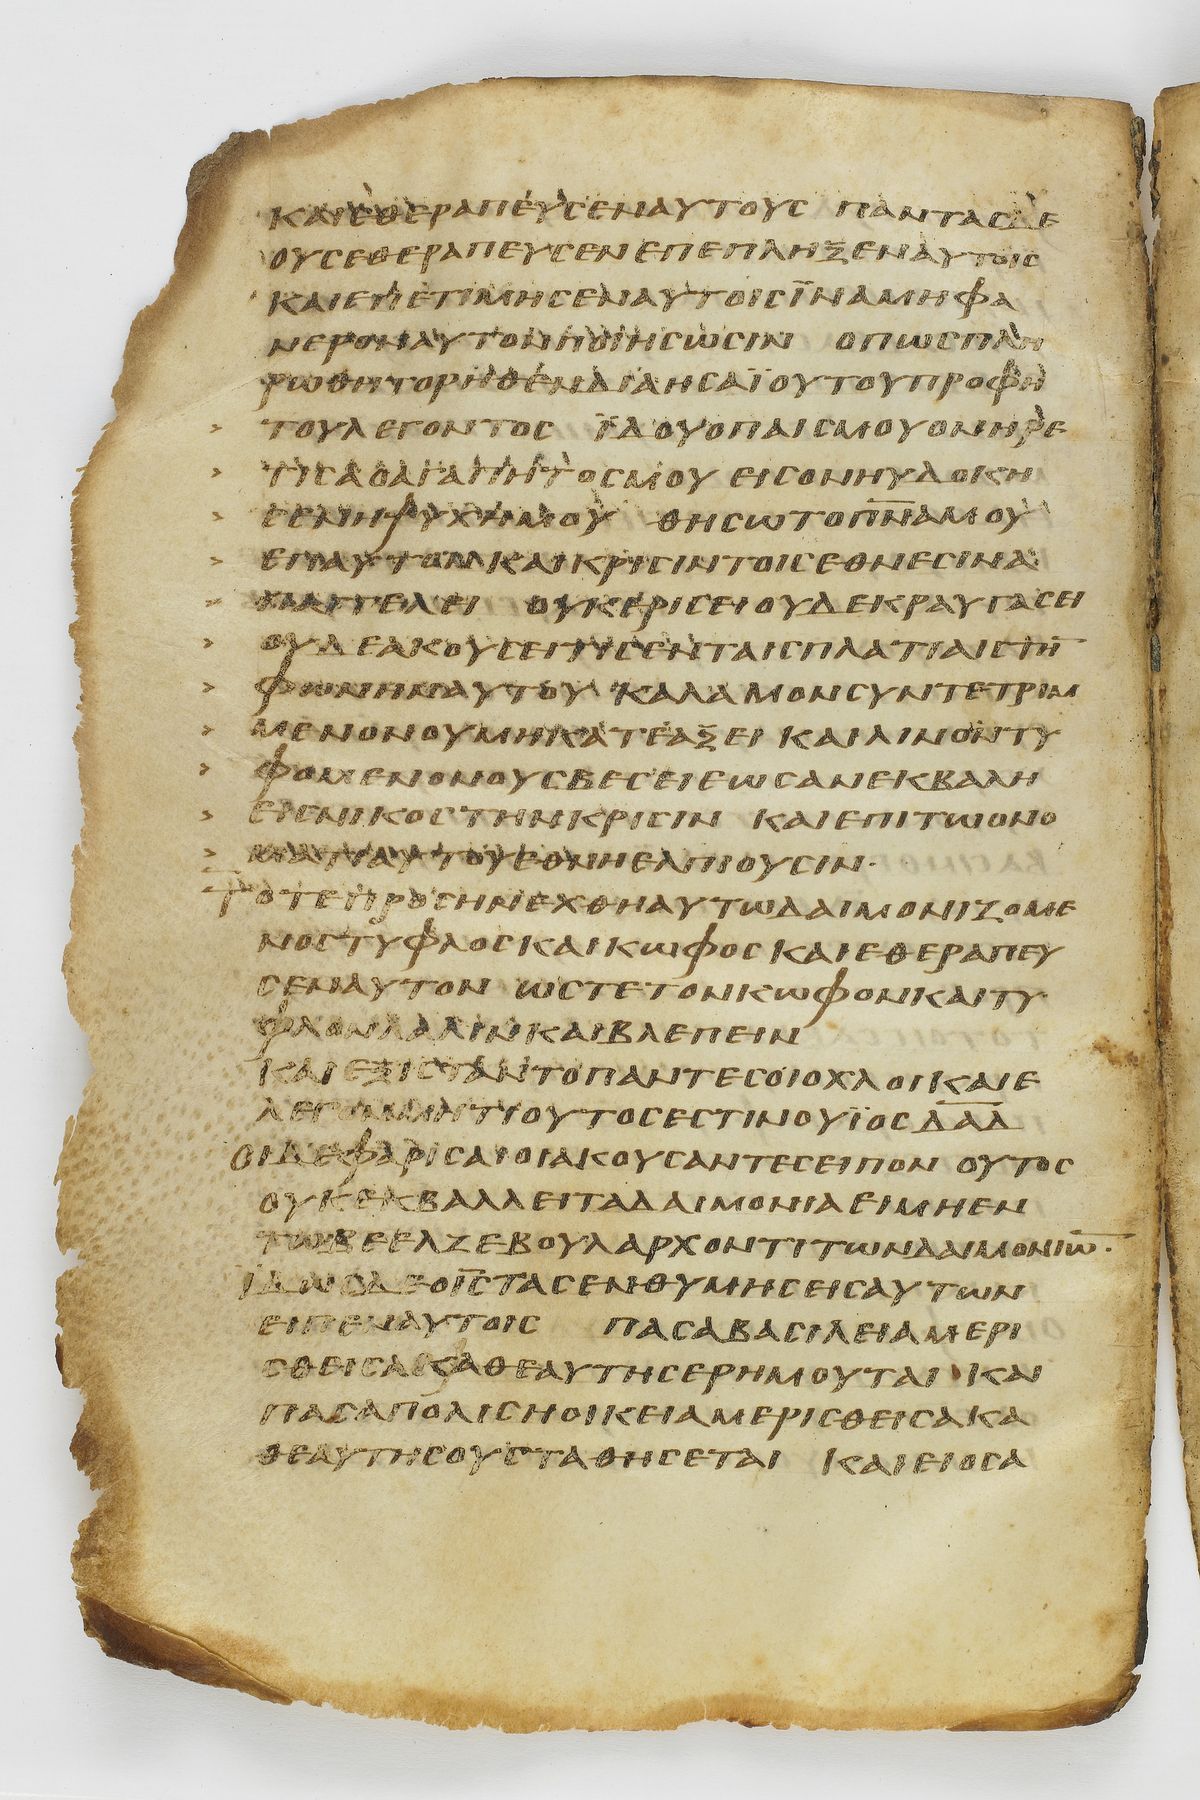 ΚΑΙΕΘΕΡΑΠΕΥΣΕΝΑΥΤΟΥΣ ΠΑΝΤΑΣΔΕ
ΟΥΣΕΘΕΡΑΠΕΥΣΕΝΕΠΕΠΛΗΞΕΝΑΥΤΟΙΣ
ΚΑΙΕΠΕΤΙΜΗΣΕΝΑΥΤΟΙΣΪΝΑΜΗΦΑ
ΝΕΡΟΝΑΥΤΟΝΠΟΙΗΣΩΣΙΝ ΟΠΩΣΠΛΗ
ΡΩΘΗΤΟΡΗΘΕΝΔΙΑΗΣΑΪΟΥΤΟΥΠΡΟΦΗ
> ΤΟΥΛΕΓΟΝΤΟΣ ΪΔΟΥΟΠΑΙΣΜΟΥΟΝΗΡΕ
> ΤΙΣΑΟΑΓΑΠΗΤΟΣΜΟΥ ΕΙΣΟΝΗΥΔΟΚΗ
> ΣΕΝΗΨΥΧΗΜΟΥ ΘΗΣΩΤΟΠ̅Ν̅Α̅ΜΟΥ
> ΕΠΑΥΤΟΝΚΑΙΚΡΙΣΙΝΤΟΙΣΕΘΝΕΣΙΝΑ
> ΠΑΓΓΕΛΕΙ ΟΥΚΕΡΙΣΕΙΟΥΔΕΚΡΑΥΓΑΣΕΙ
> ΟΥΔΕΑΚΟΥΣΕΙΤΙΣΕΝΤΑΙΣΠΛΑΤΙΑΙΣΤΗ̅
> ΦΩΝΗΝΑΥΤΟΥ ΚΑΛΑΜΟΝΣΥΝΤΕΤΡΙΜ
> ΜΕΝΟΝΟΥΜΗΚΑΤΕΑΞΕΙ ΚΑΙΛΙΝΟΝΤΥ
> ΦΟΜΕΝΟΝΟΥΣΒΕΣΕΙΕΩΣΑΝΕΚΒΑΛΗ
> ΕΙΣΝΙΚΟΣΤΗΝΚΡΙΣΙΝ ΚΑΙΕΠΙΤΩΟΝΟ
> ΜΑΤΙΑΥΤΟΥΕΘΝΗΕΛΠΙΟΥΣΙΝ·
ΤΟΤΕΠΡΟΣΗΝΕΧΘΗΑΥΤΩΔΑΙΜΟΝΙΖΟΜΕ
ΝΟΣΤΥΦΛΟΣΚΑΙΚΩΦΟΣ ΚΑΙΕΘΕΡΑΠΕΥ
ΣΕΝΑΥΤΟΝ ΩΣΤΕΤΟΝΚΩΦΟΝΚΑΙΤΥ
ΦΛΟΝΛΑΛΙΝΚΑΙΒΛΕΠΕΙΝ
ΚΑΙΕΞΙΣΤΑΝΤΟΠΑΝΤΕΣΟΙΟΧΛΟΙΚΑΙΕ
ΛΕΓΟΝΜΗΤΙΟΥΤΟΣΕΣΤΙΝΟΥΪΟΣΔ̅Α̅Δ̅
ΟΙΔΕΦΑΡΙΣΑΙΟΙΑΚΟΥΣΑΝΤΕΣΕΙΠΟΝ ΟΥΤΟΣ
ΟΥΚΕΚΒΑΛΛΕΙΤΑΔΑΙΜΟΝΙΑΕΙΜΗΕΝ
ΤΩΒΕΕΛΖΕΒΟΥΛΑΡΧΟΝΤΙΤΩΝΔΑΙΜΟΝΙΩ̅·
ΪΔΩΣΔΕΟΙ̅Σ̅ΤΑΣΕΝΘΥΜΗΣΕΙΣΑΥΤΩΝ
ΕΙΠΕΝΑΥΤΟΙΣ ΠΑΣΑΒΑΣΙΛΕΙΑΜΕΡΙ
ΣΘΕΙΣΑΚΑΘΕΑΥΤΗΣΕΡΗΜΟΥΤΑΙ ΚΑΙ
ΠΑΣΑΠΟΛΙΣΗΟΙΚΕΙΑΜΕΡΙΣΘΕΙΣΑΚΑ
ΘΕΑΥΤΗΣΟΥΣΤΑΘΗΣΕΤΑΙ ΚΑΙΕΙΟΣΑ